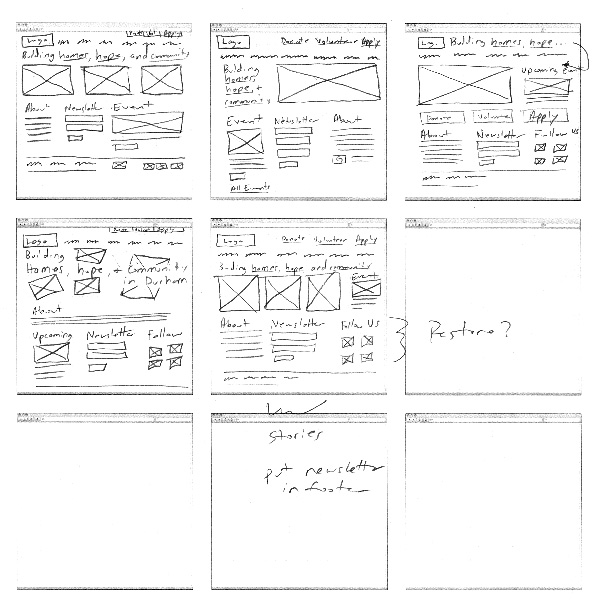 Logo
Building homes, hope, and community
About
Newsletter
Event
Logo
Donate Volunteer Apply
Building
homes,
hope, +
community
Event
Newsletter
About
All Events
Building homes, hope...
Upcoming
Apply
About
Newsletter
Follow Us
Logo
Building
Homes, hope, + Community
in Durham
About
Upcoming
Newsletter
Follow
Logo
Donate Volunteer Apply
Building homes, hope and community
Event
About
Newsletter
Follow Us
Restore?
Stories
put newsletter
in footer